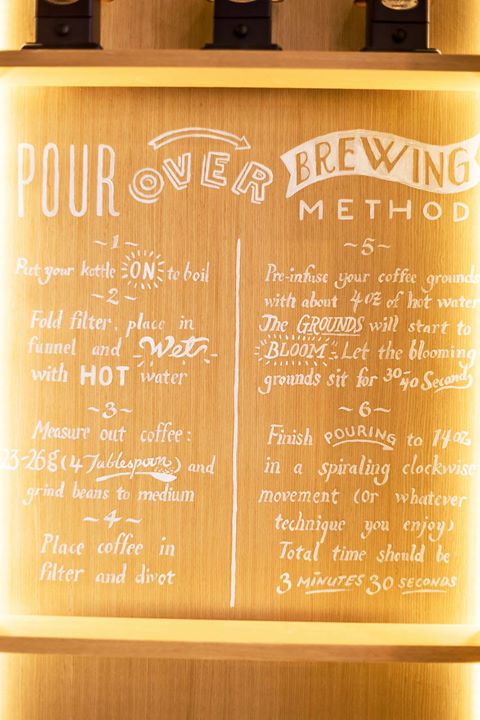 POUR OVER BREWING
METHOD
~1~
Put your kettle ON to boil
~2~
Fold filter, place in
funnel and Wet
with HOT water
~3~
Measure out coffee:
23-26g (4 Tablespoon) and
grind beans to medium
~4~
Place coffee in
filter and divot
~5~
Pre-infuse your coffee grounds
with about 4oz of hot water
The GROUNDS will start to
BLOOM. Let the blooming
grounds sit for 30-40 Seconds
~6~
Finish POURING to 14oz
in a spiraling clockwise
movement (Or whatever
technique you enjoy)
Total time should be
3 MINUTES 30 SECONDS